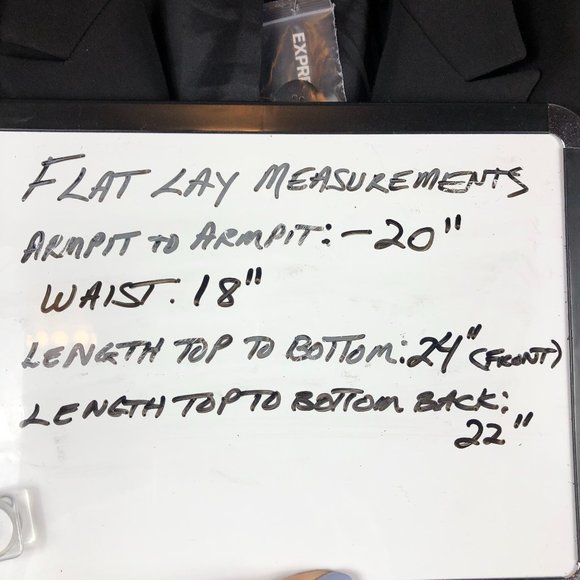 EXPR
FLAT LAY MEASUREMENTS
ARMPIT TO ARMPIT: -20"
WAIST. 18"
LENGTH TOP TO BOTTOM: 24" (FRONT)
LENGTH TOP TO BOTTOM BACK:
22"